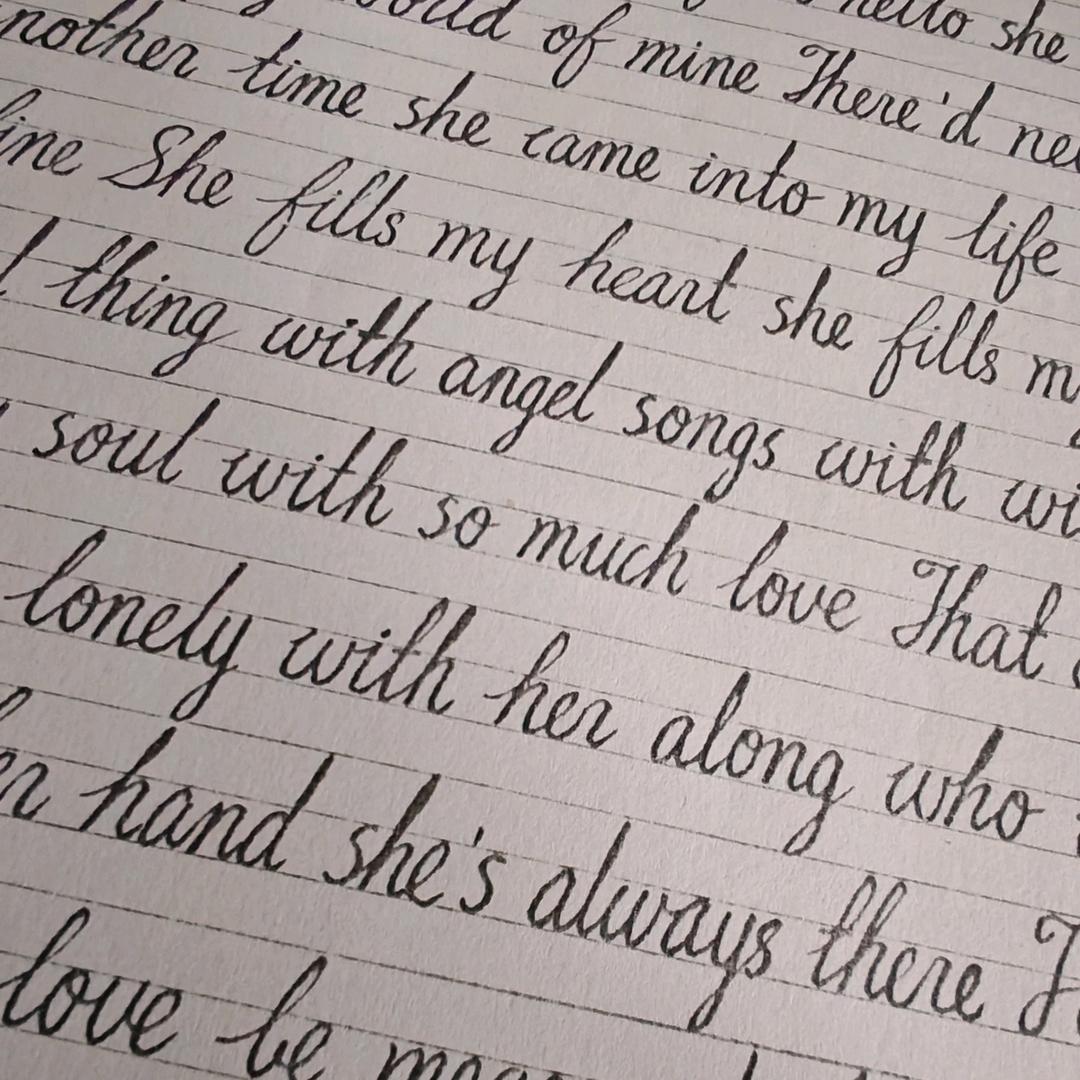 of mine There'd
time she came into my life
She fills my heart she fills
thing with angel songs with
soul with so much love That
lonely with her along who
hand she's always there
love be